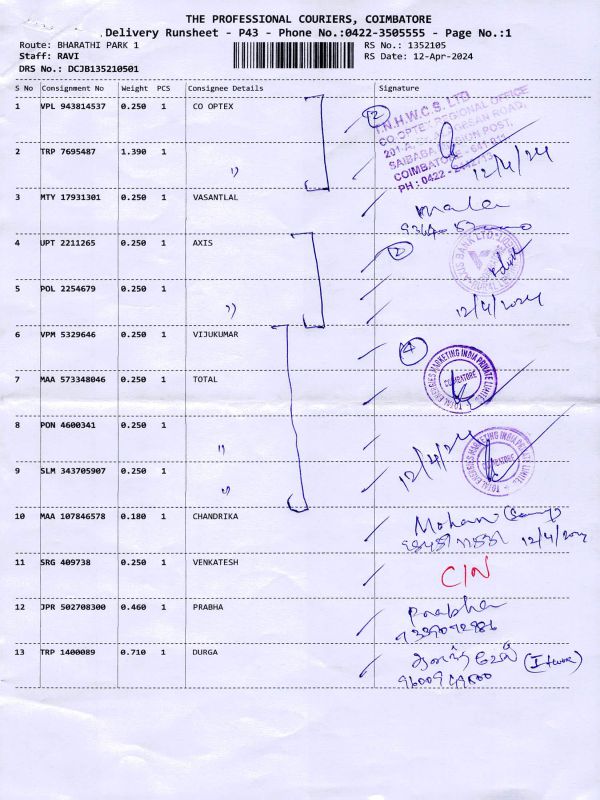 THE PROFESSIONAL COURIERS, COIMBATORE
Delivery Runsheet - P43 - Phone No.:0422-3505555 - Page No.:1
Route: BHARATHI PARK 1 RS No.: 1352105
Staff: RAVI RS Date: 12-Apr-2024
DRS No.: DCJB135210501
S No Consignment No Weight PCS Consignee Details Signature
1 VPL 943814537 0.250 1 CO OPTEX 2
T.N.H.W.C.S. LTD
CO.OPTEX REGIONAL OFFICE
2 TRP 7695487 1.390 1 12/4/24
3 MTY 17931301 0.250 1 VASANTLAL mala
4 UPT 2211265 0.250 1 AXIS 2
AXIS BANK LTD
5 POL 2254679 0.250 1 12/4/2024
6 VPM 5329646 0.250 1 VIJUKUMAR 4
TOTAL ENERGIES MARKETING INDIA PRIVATE LIMITED
COIMBATORE
7 MAA 573348046 0.250 1 TOTAL
8 PON 4600341 0.250 1
9 SLM 343705907 0.250 1 12/4/24
10 MAA 107846578 0.180 1 CHANDRIKA Mohan
12/4/2024
11 SRG 409738 0.250 1 VENKATESH C/N
12 JPR 502708300 0.460 1 PRABHA Prabha
13 TRP 1400089 0.710 1 DURGA